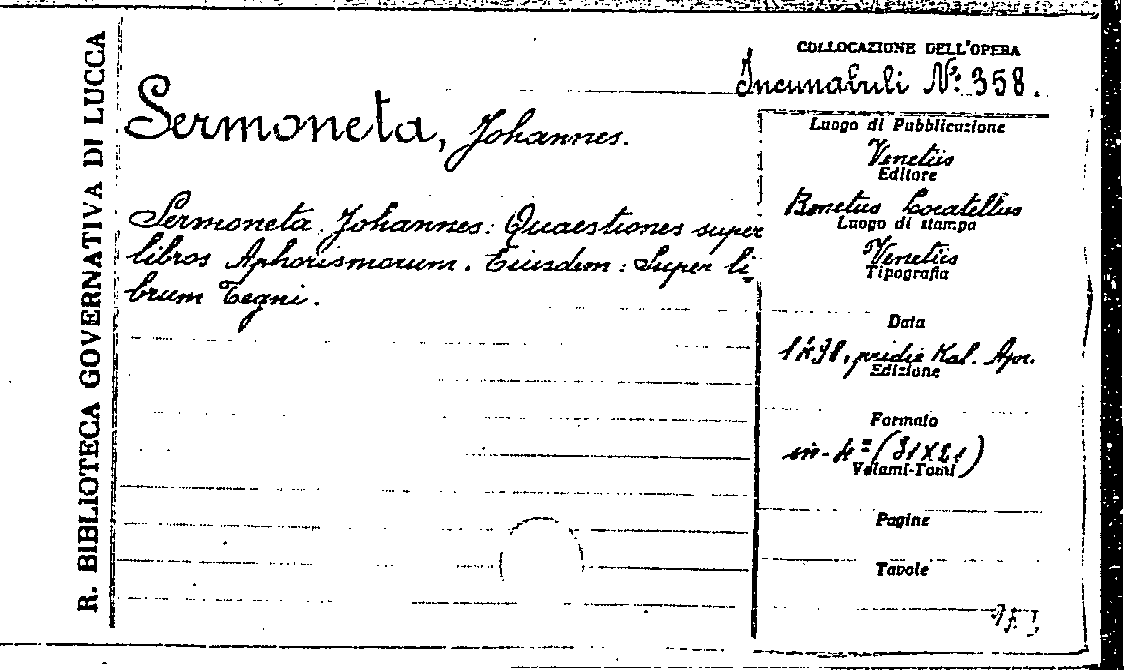 R. BIBLIOTECA GOVERNATIVA DI LUCCA
COLLOCAZIONE DELL'OPERA
Incunabuli N°: 358.
Sermoneta, Johannes.
Sermoneta Johannes: Quaestiones super
libros Aphorismorum. Eiusdem: Super li-
brum Tegni.
Luogo di Pubblicazione
Venetiis
Editore
Bonetus Locatellus
Luogo di stampa
Venetiis
Tipografia
Data
1498, pridie Kal. Apr.
Edizione
Formato
in-4º (31X21)
Volumi-Tomi
Pagine
Tavole